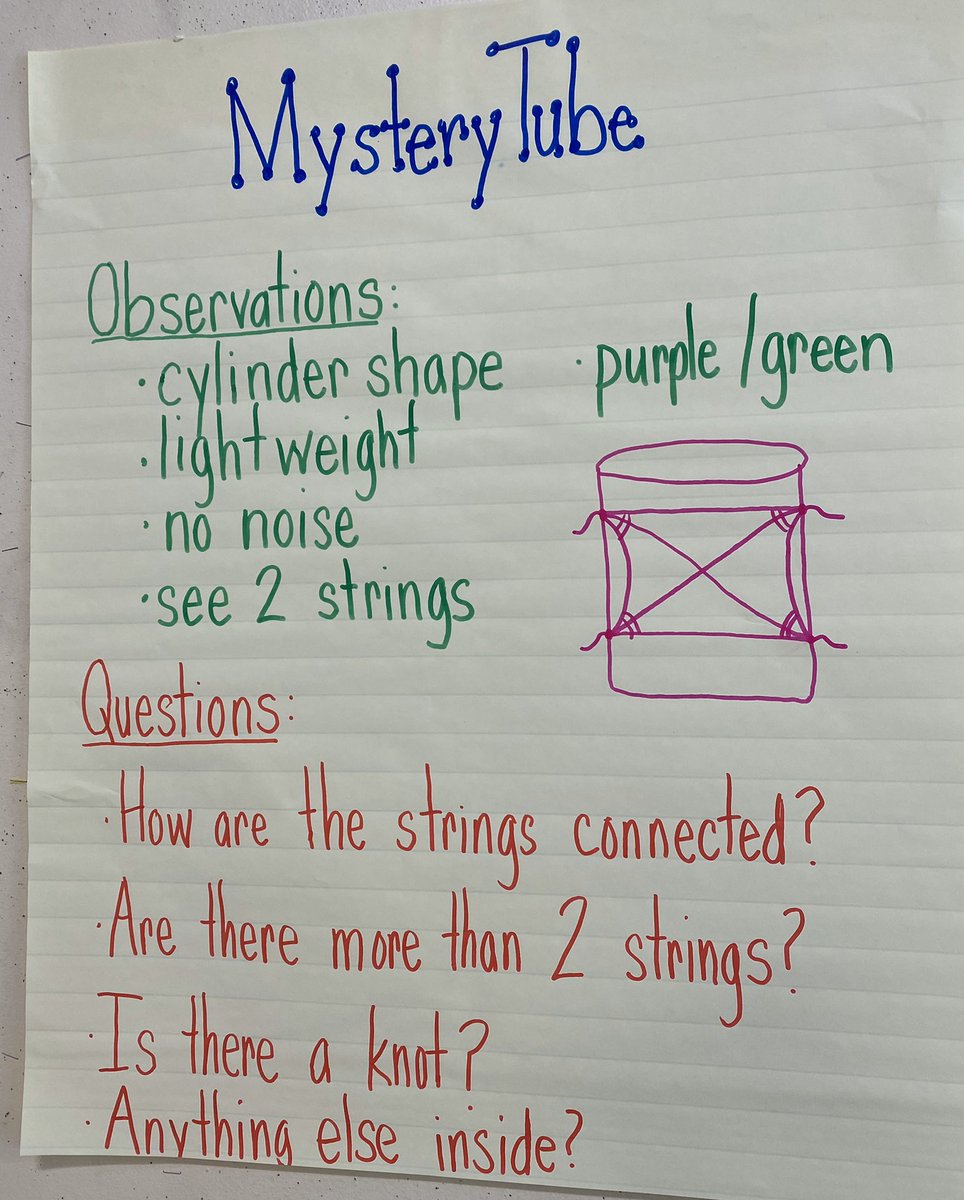 Mystery Tube
Observations:
· cylinder shape · purple/green
· lightweight
· no noise
· see 2 strings
Questions:
· How are the strings connected?
· Are there more than 2 strings?
· Is there a knot?
· Anything else inside?